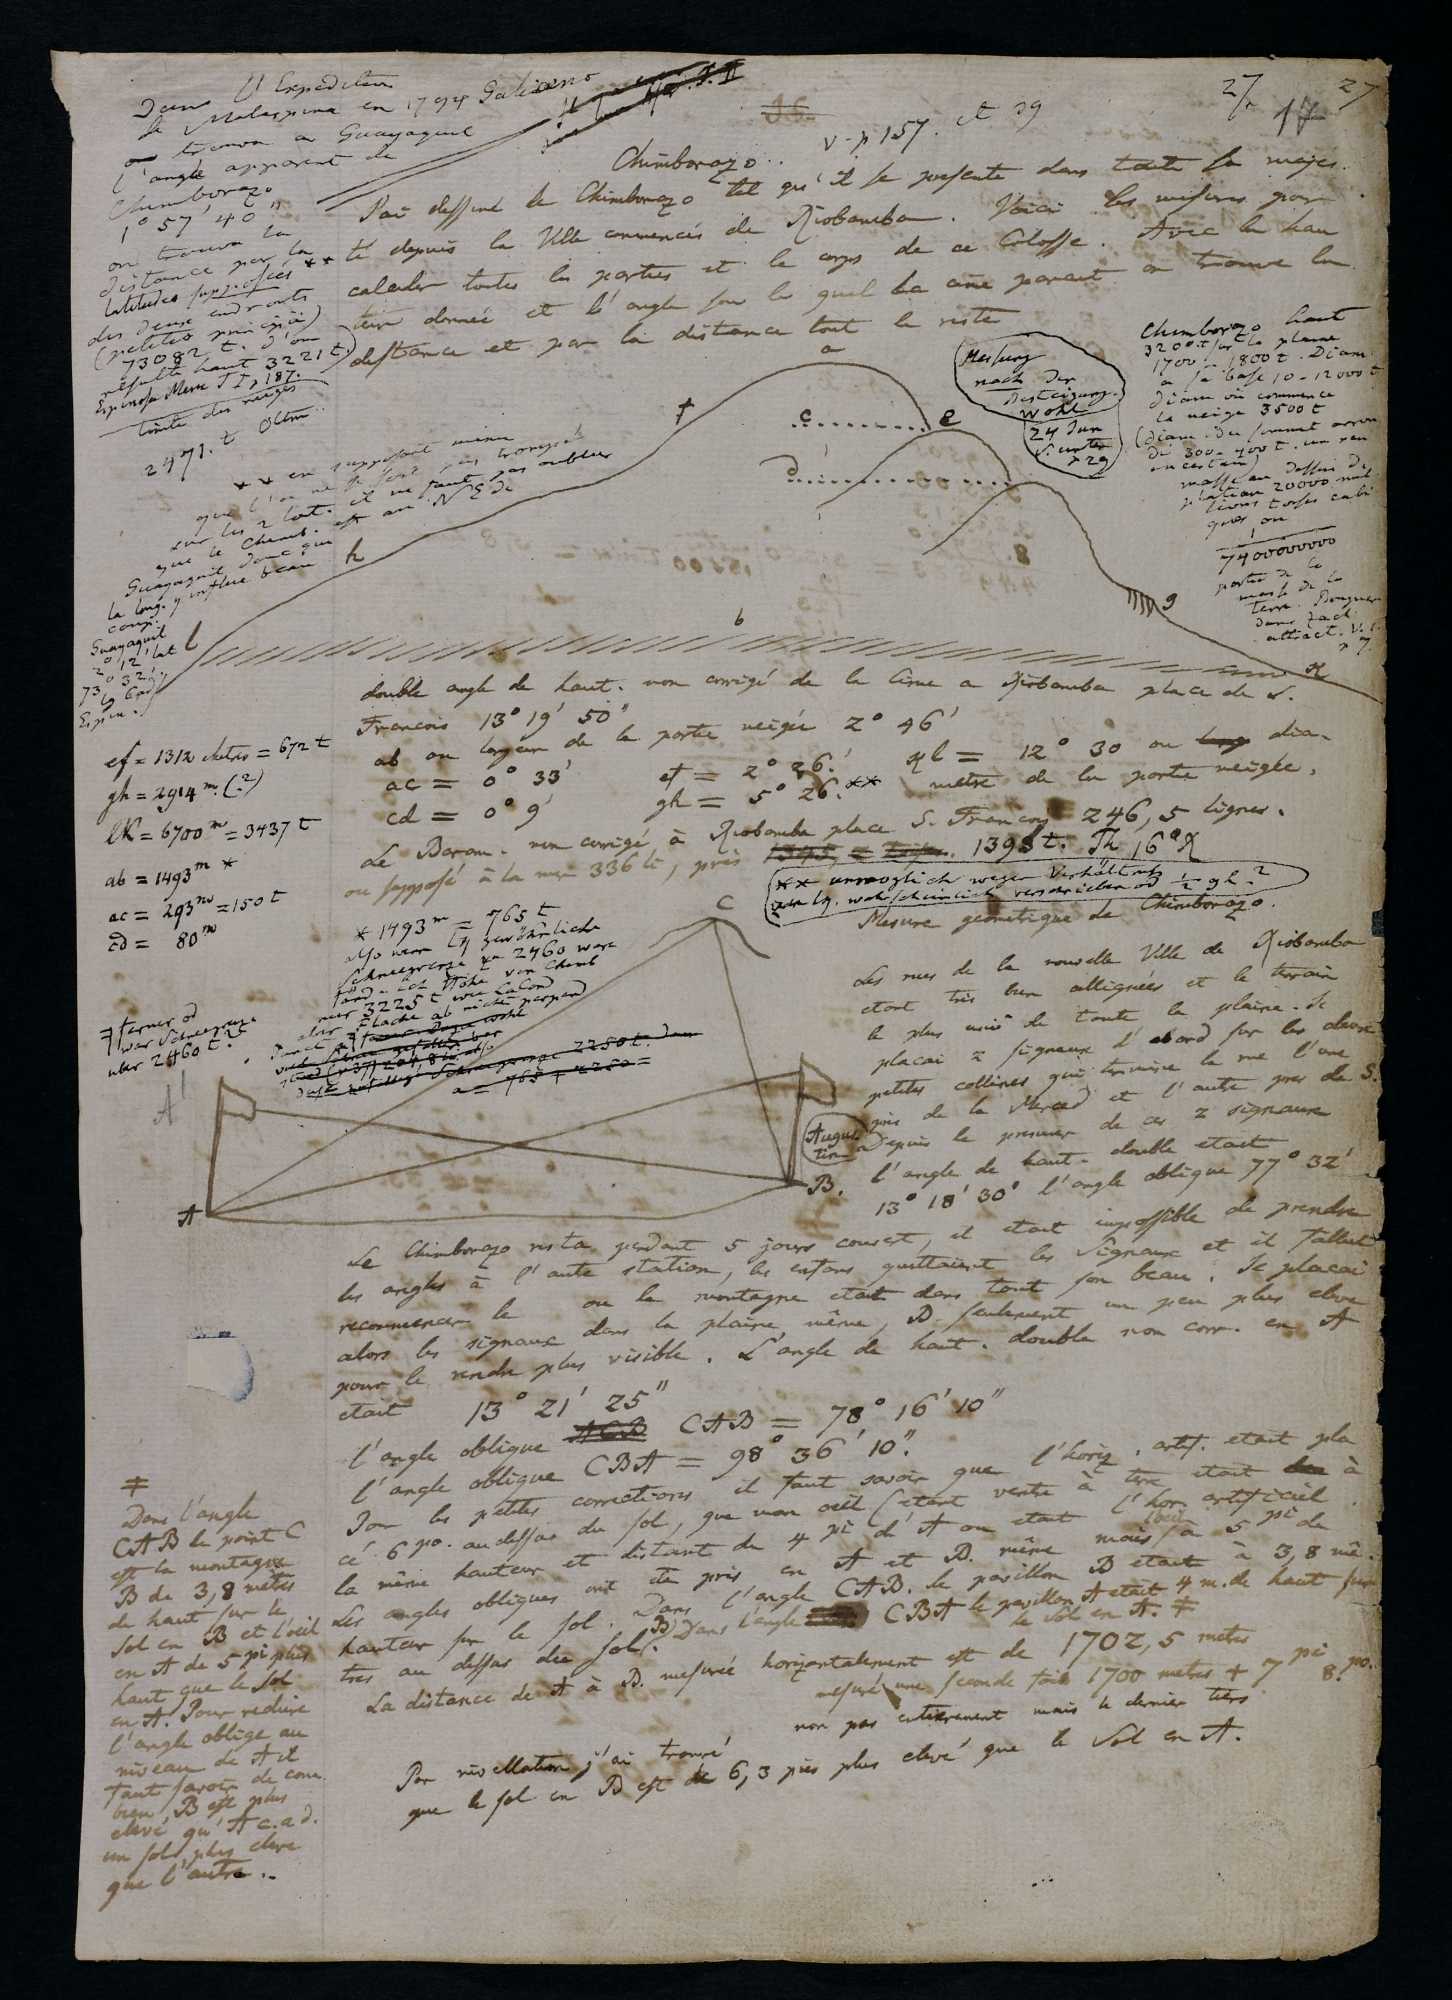 27
27
17
v. p. 157. et 39
Dans l'Expedition
de Malaspina en 1794 Galeano
on trouva a Guayaquil
l'angle apparent de
Chimborazo
1° 57' 40"
on trouva la
distance par la
latitudes supposées **
des deux endroits
(petitio principii)
73082 t. d'ou
resulte haut 3221 t)
Espinosa Mem T I p 187.
limite des neiges
2471. t Oltm..
** en supposant meme
que l'on ne se soit pas trompé
sur les 2 lat. il ne faut pas oublier
que le Chimb. est au NE de
Guayaquil donc que
la long. y influe beau
coup.
Guayaquil
2° 12' lat
Espin.
Chimborazo..
J'ai dessiné le Chimborazo tel qu'il se presente dans toute sa majes.
té depuis la Ville commencés de Riobamba. Voici les mesures pour
calculer toutes les parties et le corps de ce Colosse. Avec la hau
teur donnée et l'angle sous les quel la cime parait on trouve la
distance et par la distance tout le reste
a
f
c
e
d
h
b
g
l
k
Messung
nach der
Besteigung.
wohl
24 Jun
S. unten
p 29
Chimborazo haut
3200 t sur la plaine
1700 - 1800 t. Diam
a sa base 10-12000 t
Diam où commence
la neige 3500 t
(diam du sommet arron
di 300-400 t. un peu
incertain)
masse au dessus du
plateau 20000 mil
lions toises cubi
ques ou
1
7400000000
partie de la
masse de la
terre. Bouguer
dans Zach
attract. V. 1.
p 7.
double angle de haut. non corrigé de la Cime a Riobamba place de S.
Francois 13° 19' 50"
ab ou largeur de la partie neigée 2° 46'
ac = 0° 33' ef = 2° 26.' kl = 12° 30 ou dia-
cd = 0° 9' gh = 5° 26.' ** metre de la partie neigée.
Le Barom. non corrigé à Riobamba place S. Francois 246,5 lignes.
ou supposé à la mer 336 li, près 1398 t. Th 16° R
** unmoglich wegen Verhältniss
von lg. wahrscheinlich verschrieben od 1/2 gh.?
ef = 1312 metres = 672 t
gh = 2914 m. (?)
lK = 6700 m = 3437 t
ab = 1493 m *
ac = 293 m = 150 t
cd = 80 m
* 1493 m = 765 t
also wenn die gewöhnliche
Schneegrenze zu 2460 ware
fänd. ich Höhe von Chimb
nur 3225 t wie LaCond
aber Fläche ab nicht perpend
ferner od
war Schneegrenze
uber 2460 t.?
Mesure geometrique de Chimborazo.
Les rues de la nouvelle Ville de Riobamba
etant très bien alligniées et le terrain
le plus uni de toute la plaine. Je
placai 2 signaux d'abord sur les deux
petites collines qui termine la rue l'une
près de la Merced et l'autre près de S.
Augus
tin. Depuis le premier de ces 2 signaux
l'angle de haut. double etait
13° 18' 30" l'angle oblique 77° 32'
C
A'
A
B.
Le Chimborazo resta pendant 5 jours couvert, il etait impossible de prendre
les angles à l'autre station, les enfans quittaient les Signaux et il fallut
recommencer le ou la montagne etait dans tout son beau. Je placai
alors les signaux dans la plaine même, B seulement un peu plus elevé
pour le rendre plus visible. L'angle de haut. double non corr. en A
etait 13° 21' 25"
l'angle oblique CAB = 78° 16' 10"
l'angle oblique CBA = 98° 36' 10".
Pour les petites corrections il faut savoir que l'horiz. artif. etait pla
cé 6 po. au dessus du sol, que mon oeil (etant ventre à terre etait à
la même hauteur et distant de 4 pi de l'hor. artificiel.
Les angles obliques ont été pris en A et B. même mais l'oeil à 5 pi de
hauteur sur le sol. Dans l'angle CAB. le pavillon B etait à 3,8 mè-
tres au dessus du sol. Dans l'angle CBA le pavillon A etait 4 m. de haut sur
le Sol en A. ‡
La distance de A à B. mesurée horizontalement est de 1702,5 metres
mesuré une seconde fois 1700 metres + 7 pi 8 po.
non pas entierement mais le dernier tiers
Par nivellation j'ai trouvé
que le sol en B est de 6,3 piés plus elevé que le Sol en A.
‡
Dans l'angle
CAB le point C
est la montagne
B de 3,8 mètres
de haut sur le
Sol en B et l'oeil
en A de 5 pi plus
haut que le Sol
en A. Pour reduire
l'angle oblige au
niveau de A il
faut savoir de com
bien B est plus
elevé qu'A c.a.d.
un sol plus elevé
que l'autre..